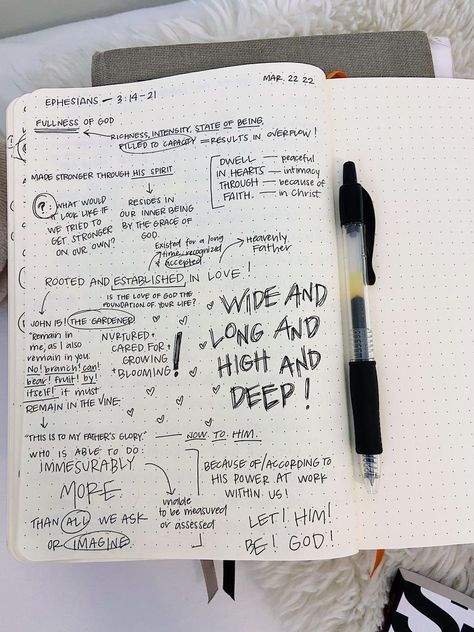 MAR. 22 22
EPHESIANS — 3:14-21
FULLNESS OF GOD
RICHNESS, INTENSITY, STATE OF BEING,
FILLED TO CAPACITY = RESULTS IN OVERFLOW!
MADE STRONGER THROUGH HIS SPIRIT
DWELL — peaceful
IN HEARTS — intimacy
THROUGH — because of
FAITH. — in Christ
?: WHAT WOULD
IT LOOK LIKE IF
WE TRIED TO
GET STRONGER
ON OUR OWN?
RESIDES IN
OUR INNER BEING
BY THE GRACE OF
GOD.
Existed for a long
time, recognized
+ accepted
Heavenly
Father
ROOTED AND ESTABLISHED, IN LOVE!
IS THE LOVE OF GOD THE
FOUNDATION OF YOUR LIFE?
JOHN 15! (THE GARDENER!
"Remain in
me, as I also
remain in you.
No! branch! can!
bear! fruit! by!
itself! it must
REMAIN IN THE VINE.
NURTURED +
CARED FOR +
GROWING
+ BLOOMING
!
WIDE AND
LONG AND
HIGH AND
DEEP!
"THIS IS TO MY FATHER'S GLORY." — NOW TO HIM.
WHO IS ABLE TO DO:
IMMESURABLY
MORE
THAN ALL WE ASK
OR IMAGINE.
unable
to be measured
or assessed
BECAUSE OF/ACCORDING TO
HIS POWER AT WORK
WITHIN US!
LET! HIM!
BE! GOD!